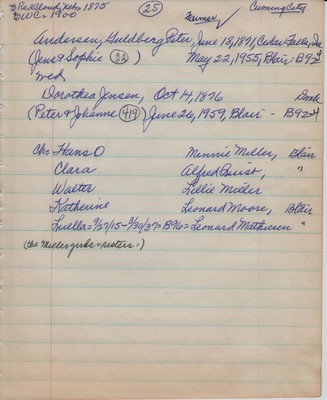 To Red Cloud, Nebr 1875
To W.C. - 1900
(25)
Farmer
Cuming City
Andersen, Guldberg Peter, June 18, 1871, Cedar Falls, Ia
(Jens & Sophie (22)) May 22, 1955, Blair - B92
wed
Dorothea Jensen, Oct 14, 1876
(Peter & Johanne (419)) June 26, 1959, Blair - B92
Chs: Hans O Minnie Miller, Blair
Clara Alfred Quist, "
Walter Lillie Miller
Katherine Leonard Moore, Blair
Luella = 9/27/15 - 3/30/37 - B96 = Leonard Mathiesen "
(the Miller girls = sisters.)